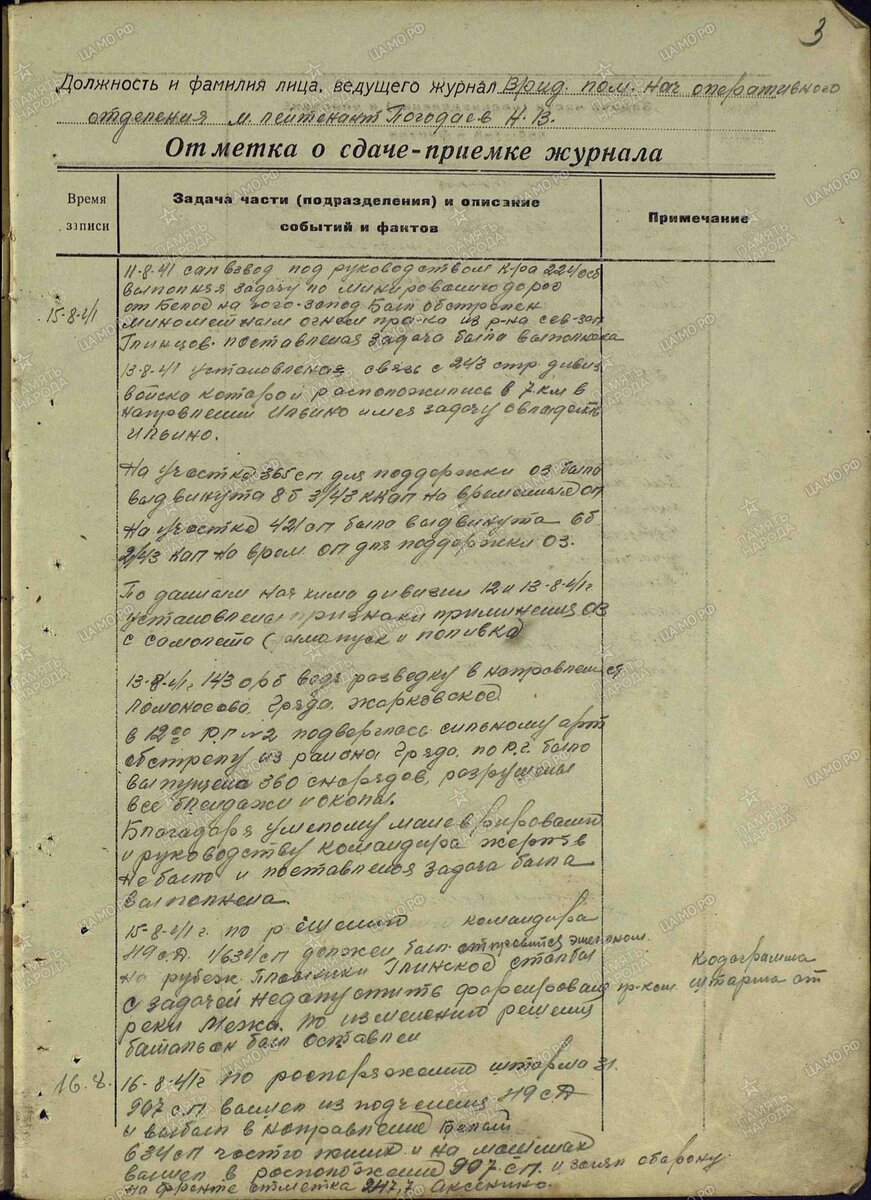 3
Должность и фамилия лица, ведущего журнал Врид. пом. нач оперативного
отделения м лейтенант Погодаев Н. В.
Отметка о сдаче-приемке журнала
Время записи
Задача части (подразделения) и описание событий и фактов
Примечание
15-8-41
11-8-41 сап взвод под руководством к-ра 224 осб
выполняя задачу по минированию дорог
от Белой на юго-запад был обстрелен
минометным огнем пр-ка из р-на сев-зап
Глинцов. поставленая задача была выполнена
13-8-41 установленая связь с 243 стр. дивиз
войска которой расположились в 7 км в
направлении Ильино имея задачу овладеть
Ильино.
На участке 365 сп для поддержки ОЗ была
выдвинута 8б 3/43 КАП на временные ОП
На участке 421 сп была выдвинута 6б
2/43 кап на врем оп для поддержки ОЗ.
По даным нач хима дивизии 12 и 13-8-41г
установлены признаки приминения ОВ
с самолета ( и поливка
13-8-41г. 143 орб ведя разведку в направлен
Ломоносово, Гряда, Жарковское
в 12 00 Р.Г №2 подверглась сильному арт
обстрелу из района Гряда, по Р.Г. было
выпущена 360 снарядов, разрушены
все блиндажи и окопы.
Благадаря умелому маневрированию
и руководству командира жертв
не было и поставленая задача была
выполнена.
15-8-41г. по решению командира
119 с.д. 1/634 сп должен был отправится эшелоном
на рубеж Глинское столбы
с задачей недопустить форсирования пр-ком
реки Межа. По изменению решения
батальон был оставлен
кодограмма
штарма от
16.8.
16-8-41г по распоряжению штарма 31.
907 с.п вышел из подчинения 119 с.д
и выбыл в направление Белый
634 сп частью и на машинах
вышел в расположение 907 с.п. и занял оборону
на фронте отметка 247,7 Аксенино.
ЦАМО.РФ
ПАМЯТЬ НАРОДА